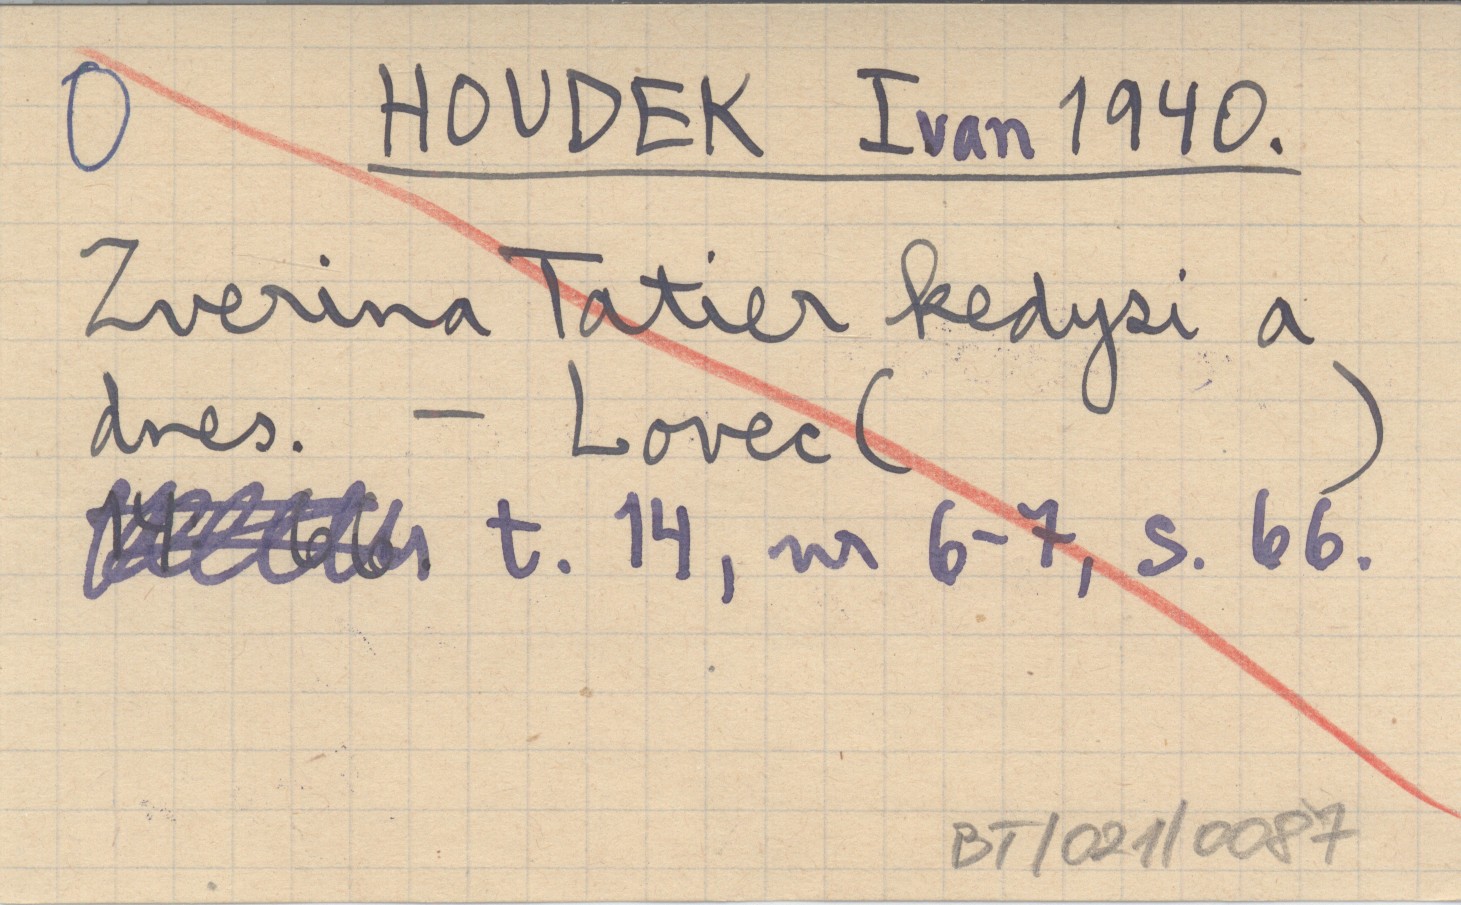 0 HOUDEK Ivan 1940.
Zverina Tatier kedysi a
dnes. – Lovec ( )
t. 14, nr 6-7, s. 66.
BT/021/0087